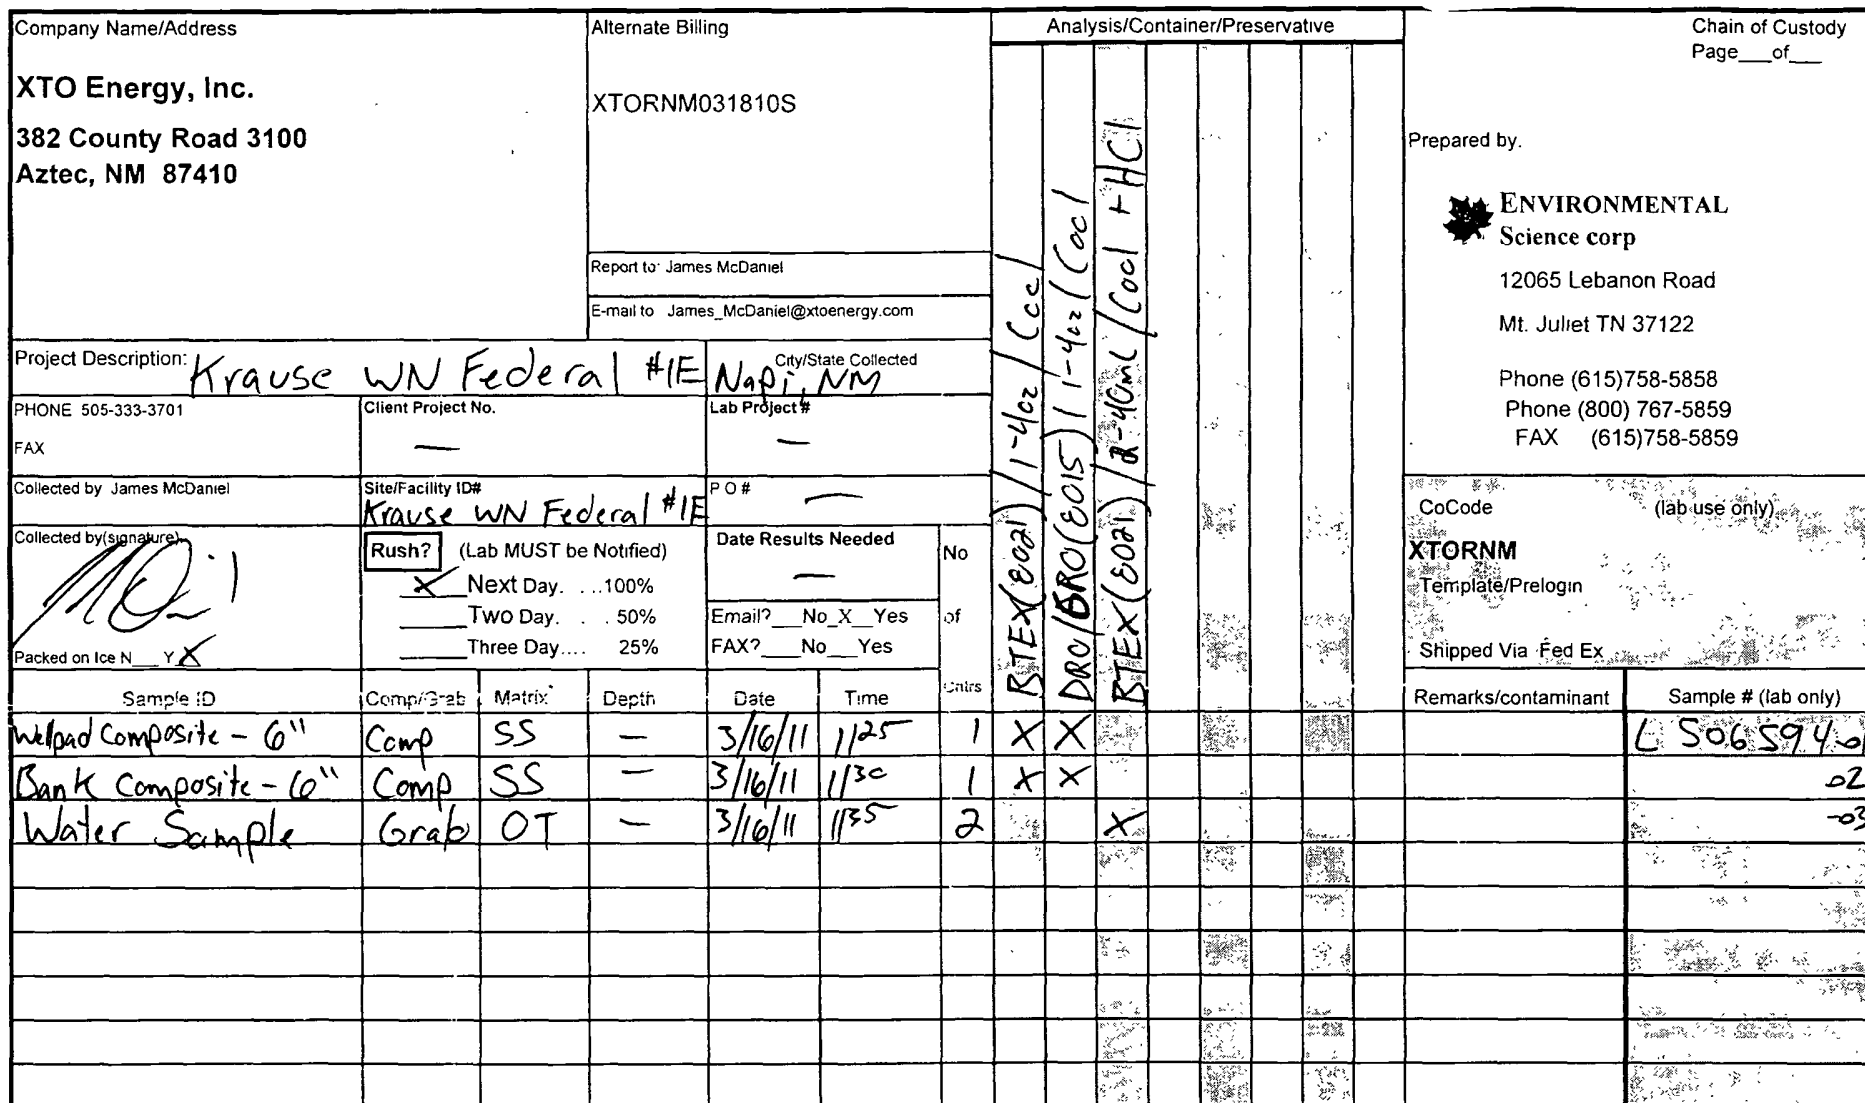 Company Name/Address
XTO Energy, Inc.
382 County Road 3100
Aztec, NM 87410
Alternate Billing
XTORNM031810S
Report to: James McDaniel
E-mail to James_McDaniel@xtoenergy.com
Analysis/Container/Preservative
BTEX (8021) / 1-4oz / Cool
DRO/GRO (8015) / 1-4oz / Cool
BTEX (8021) / 2-40ml / Cool + HCl
Chain of Custody
Page___of___
Prepared by.
ENVIRONMENTAL
Science corp
12065 Lebanon Road
Mt. Juliet TN 37122
Phone (615)758-5858
Phone (800) 767-5859
FAX (615)758-5859
Project Description: Krause WN Federal #1E
City/State Collected
Napi, NM
PHONE 505-333-3701
FAX
Client Project No.
—
Lab Project #
—
Collected by James McDaniel
Site/Facility ID#
Krause WN Federal #1E
P O #
—
Collected by(signature)
Packed on Ice N___ Y X
Rush? (Lab MUST be Notified)
X Next Day. . ..100%
____Two Day. . . 50%
____Three Day.... 25%
Date Results Needed
—
Email?___No_X__Yes
FAX?___No___Yes
No
of
Cntrs
CoCode (lab use only)
XTORNM
Template/Prelogin
Shipped Via Fed Ex
Sample ID Comp/Grab Matrix* Depth Date Time Remarks/contaminant Sample # (lab only)
Wellpad Composite - 6" Comp SS — 3/16/11 1125 1 X X L506594-01
Bank Composite - 6" Comp SS — 3/16/11 1130 1 X X -02
Water Sample Grab OT — 3/16/11 1135 2 X -03